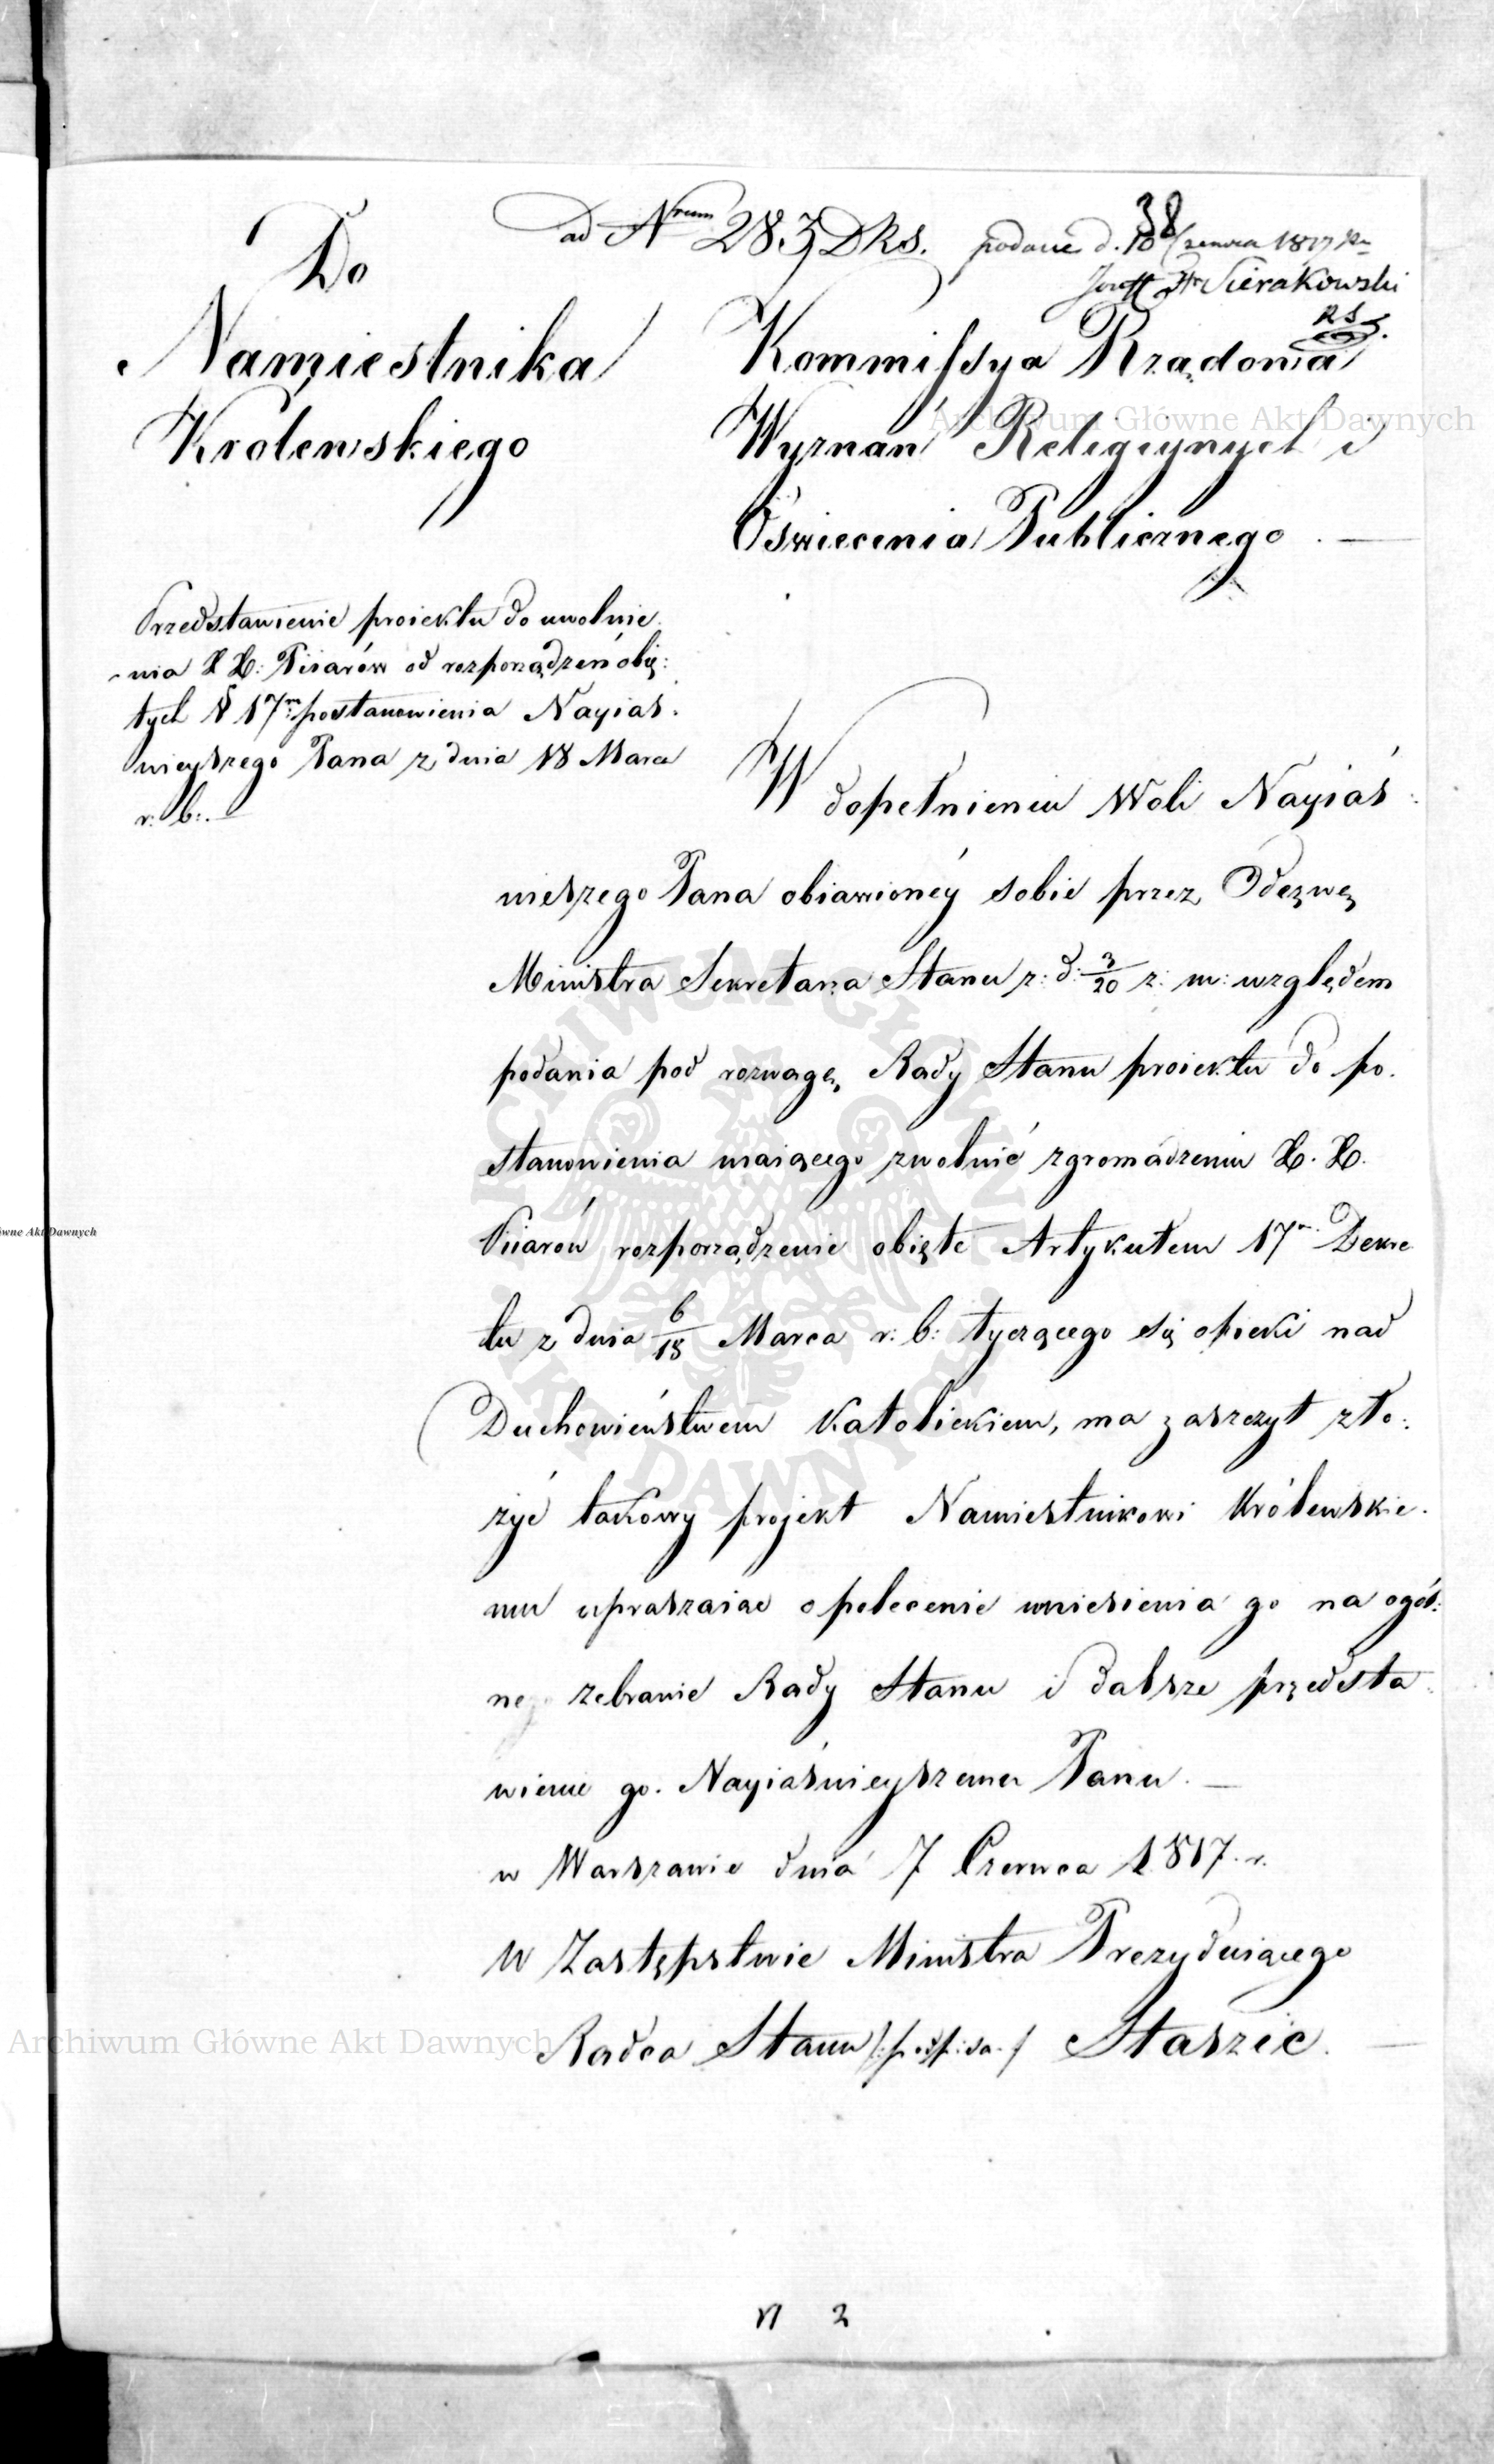 38
ad Nrum 283 Dks. podane d. 10 Czerwca 1817 Ru
Józeff Hr Sierakowski
RS
Do
Namiestnika
Królewskiego
Kommissya Rządowa
Wyznań Religiynych i
Oświecenia Publicznego . —
Przedstawienie proiektu do uwolnie
nia X X: Piiarów od rozporządzeń obię:
tych § 17m postanowienia Nayiaś.
nieyszego Pana z dnia 18 Marca
r: b:. —
W dopełnieniu Woli Nayiaś:
nieszego Pana obiawionéy sobie przez Odezwę
Ministra Sekretarza Stanu z: d: 3/20 z: m: względem
podania pod rozwagę Rady Stanu proiektu do po.
stanowienia maiącego zwolnić zgromadzeniu X. X.
Piiarów rozporządzenie obięte Artykułem 17m. Dekre
tu z dnia 6/18 Marca r: b: tyczącego się opieki nad
Duchowieństwem Katolickiem, ma zaszczyt zło:
żyć takowy projekt Namiestnikowi Królewskie.
mu upraszaiąc o polecenie wniesienia go na ogól:
ne zebranie Rady Stanu i dalsze przedsta
wienie go. Nayiaśnieyszemu Panu. —
w Warszawie dnia 7 Czerwca 1817. r.
W Zastępstwie Ministra Prezyduiącego
Radca Stanu /:podpisa.:/ Staszic. —
N 2
Archiwum Główne Akt Dawnych
ARCHIWUM GŁÓWNE AKT DAWNYCH
ówne Akt Dawnych
Archiwum Główne Akt Dawnych